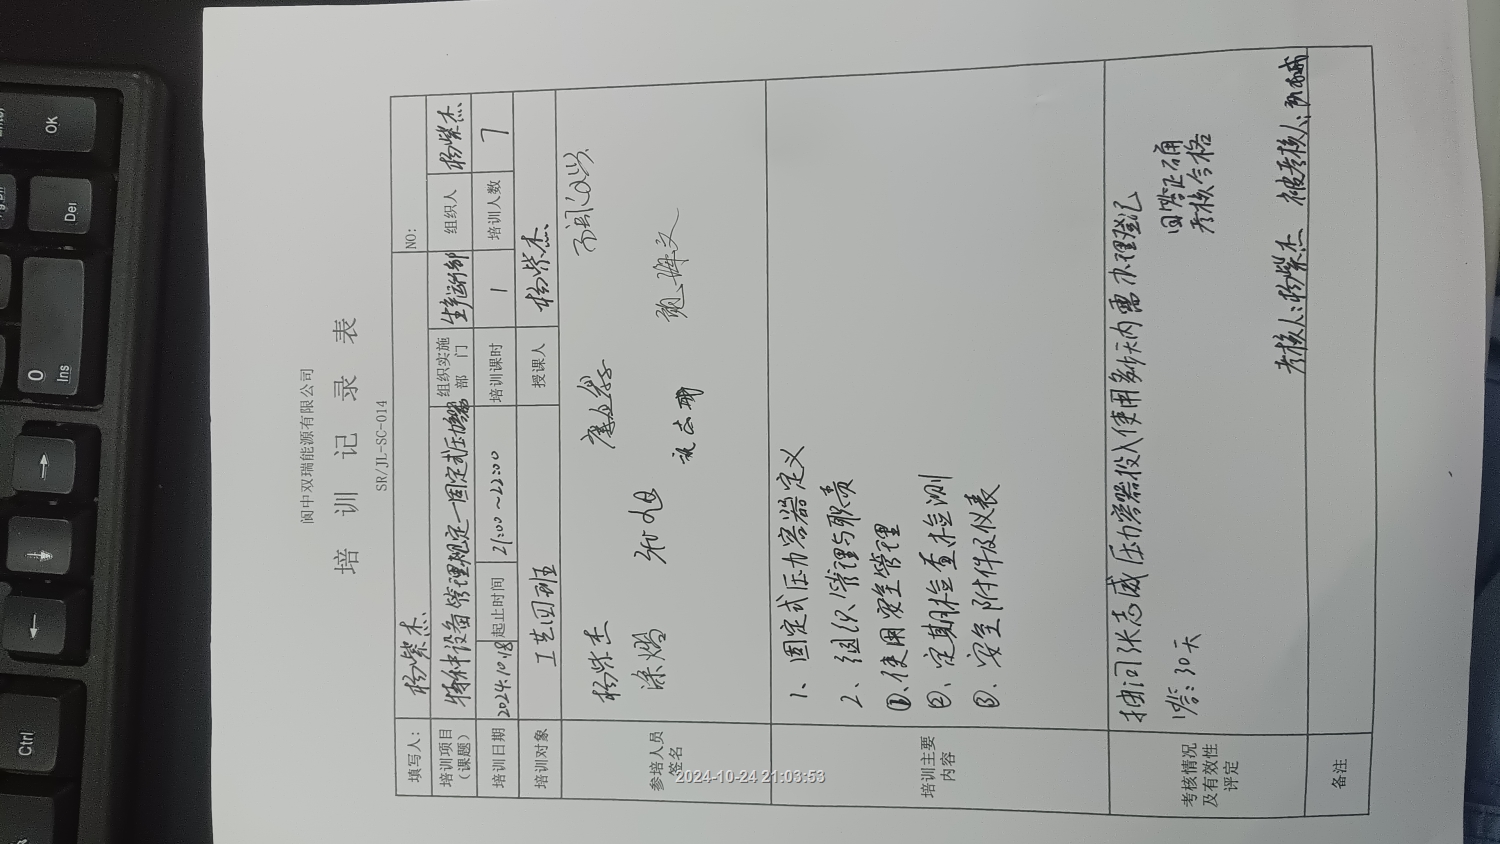 阆中双瑞能源有限公司
培训记录表
SR/JL-SC-014
填写人: 杨紫杰 NO:
培训项目(课题) 特种设备管理规定—固定式压力容器 组织实施部门 生产运行部 组织人 杨紫杰
培训日期 2024.10.18 起止时间 21:00~22:00 培训课时 1 培训人数 7
培训对象 工艺四班 授课人 杨紫杰
参培人员签名
杨紫杰
涂鸿
培训主要内容
1、固定式压力容器定义
2、组织管理与职责
①、使用安全管理
②、定期检查检测
③、安全附件及仪表
考核情况及有效性评定
抽问张志威压力容器投入使用多少天内需办理登记
答:30天
回答正确
考核合格
考核人:杨紫杰 被考核人:
备注
2024-10-24 21:03:53
Ctrl
0
Ins
Del
OK
Enter